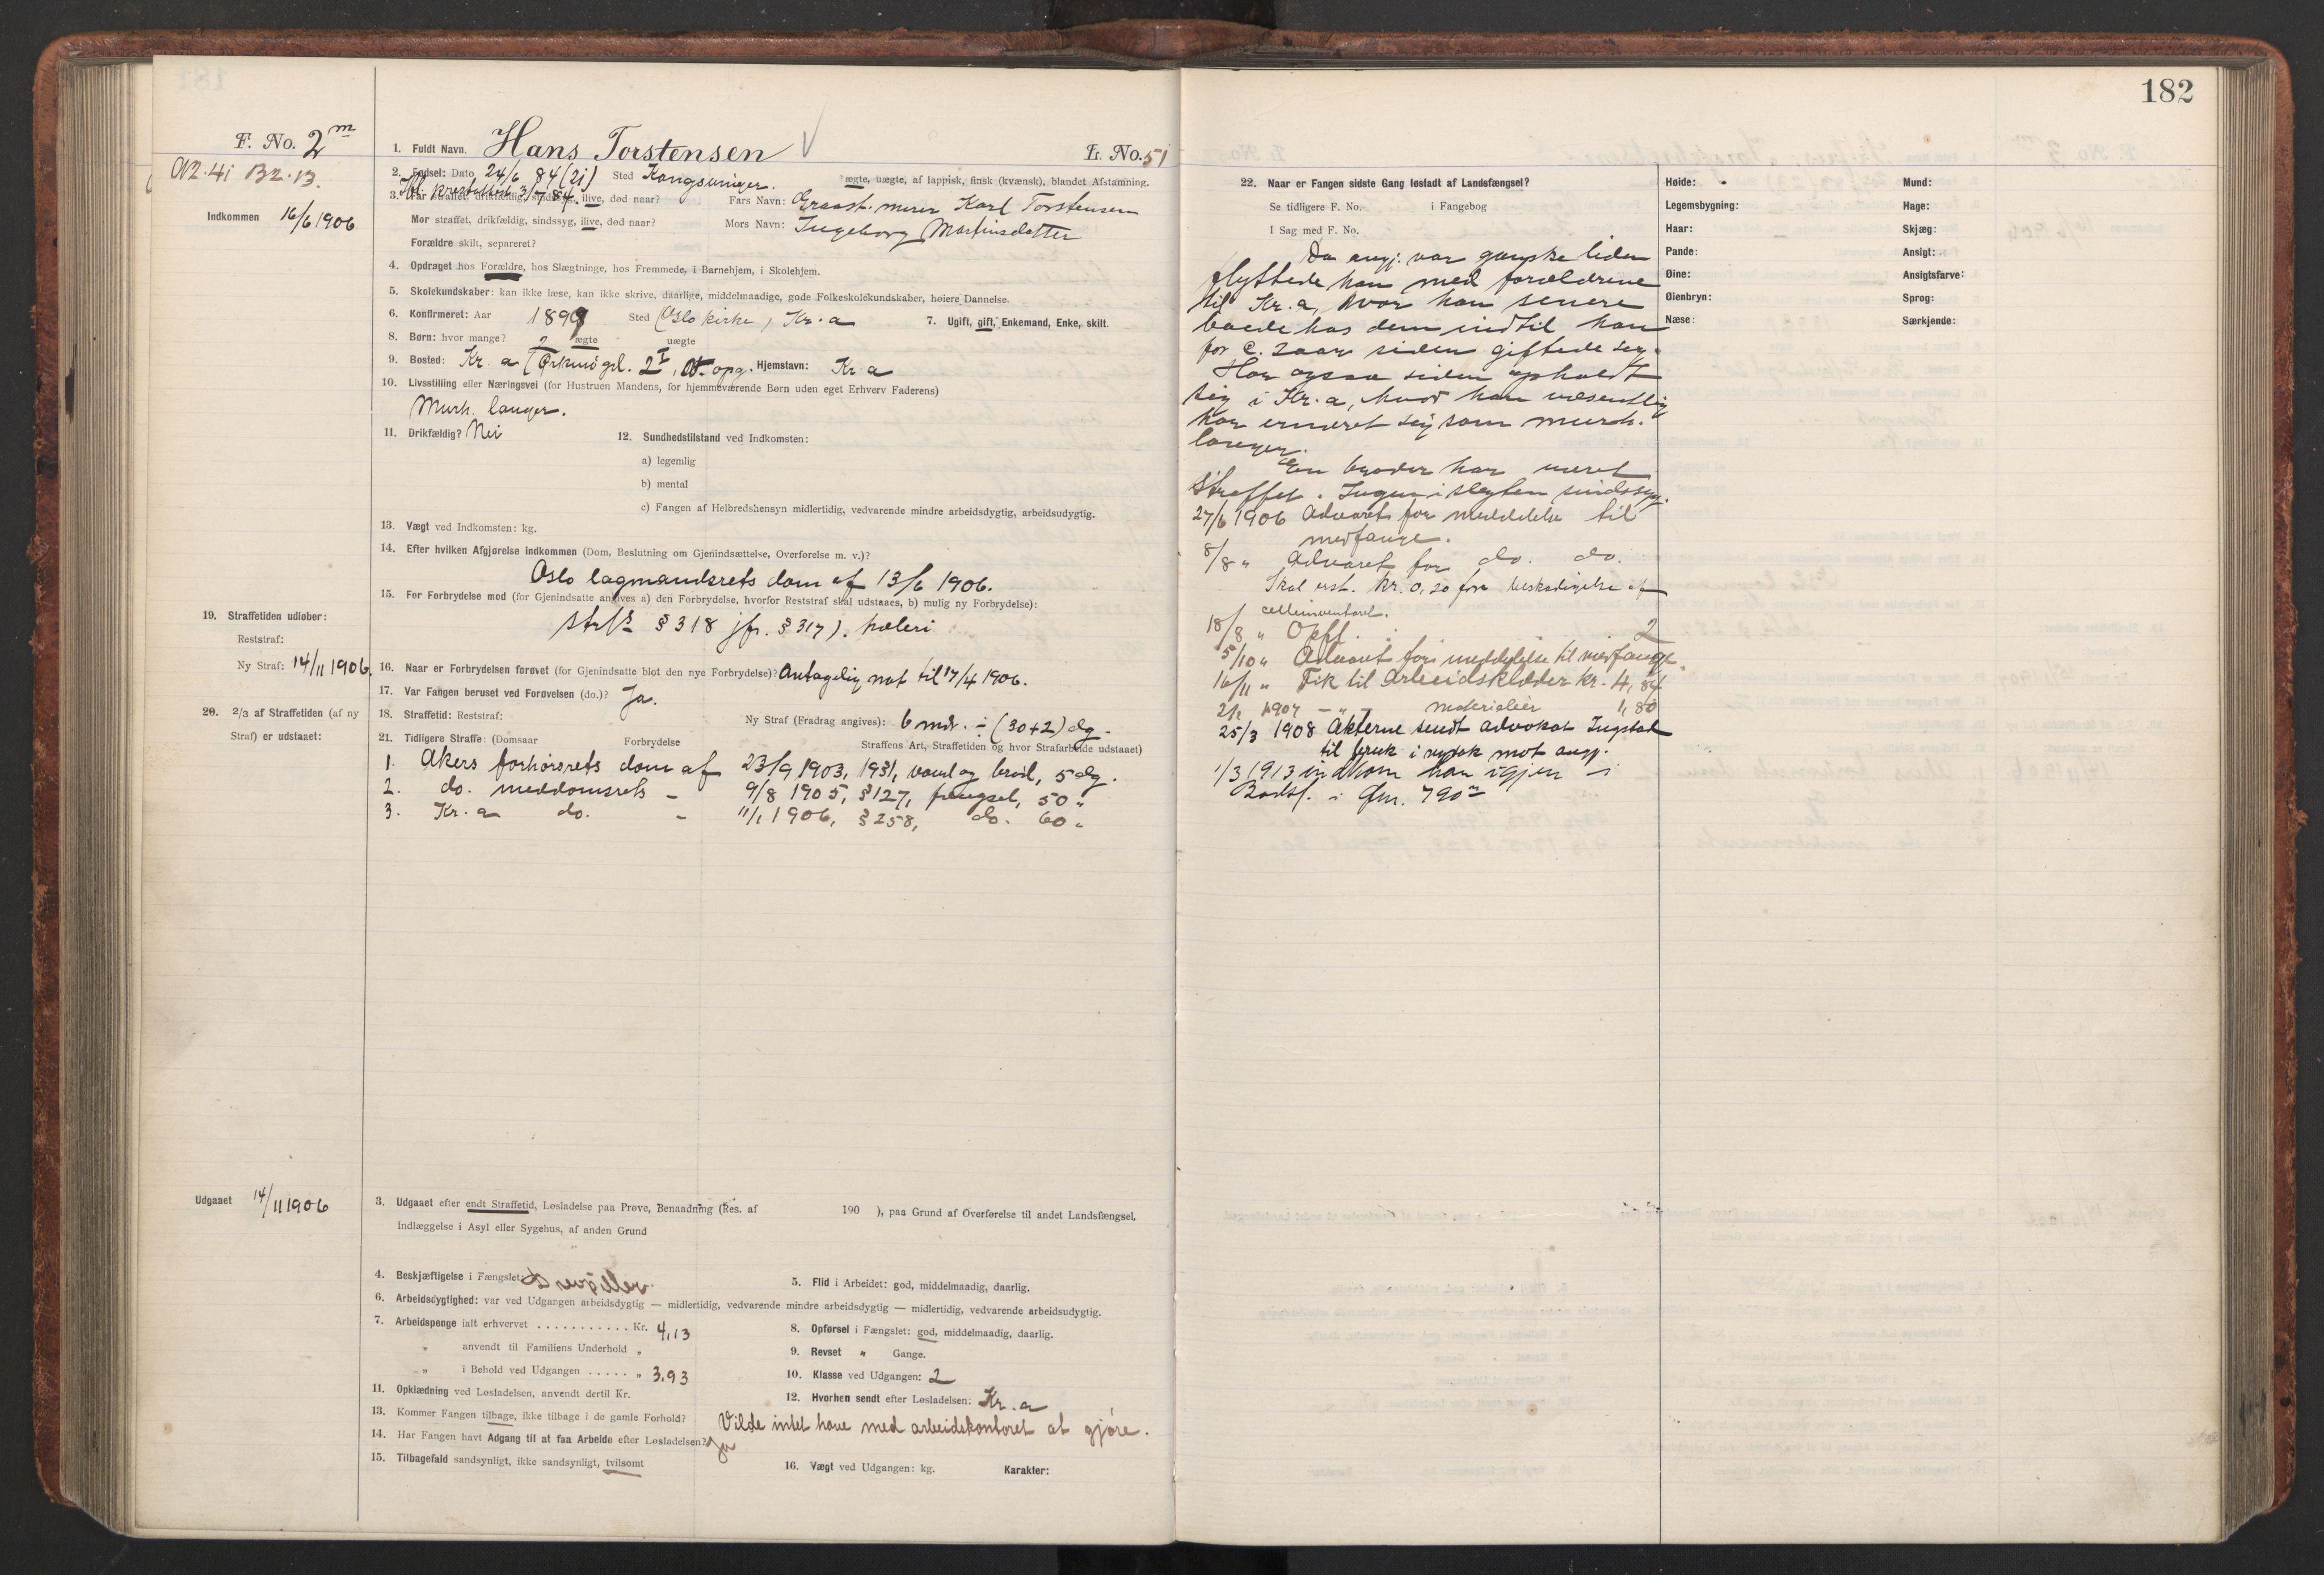 182
F. No. 2 m
1. Fuldt Navn. Hans Torstensen
L. No. 51
2. Fødsel: Dato 24/6 84 (21) Sted Kongsvinger. ægte, uægte, af lappisk, finsk (kvænsk), blandet Afstamning.
3. Far straffet, drikfældig, sindssyg, ilive, død naar? Fars Navn: Karl Torstensen
Indkommen 16/6 1906
Mor straffet, drikfældig, sindssyg, ilive, død naar? Mors Navn: Ingeborg Martinsdatter
Forældre skilt, separeret?
4. Opdraget hos Forældre, hos Slægtninge, hos Fremmede, i Barnehjem, i Skolehjem.
5. Skolekundskaber: kan ikke læse, kan ikke skrive, daarlige, middelmaadige, gode Folkeskolekundskaber, høiere Dannelse.
6. Konfirmeret: Aar 1899 Sted Oslo kirke, Kr.a 7. Ugift, gift, Enkemand, Enke, skilt.
8. Børn: hvor mange? 2 ægte uægte
9. Bosted: Kr. a 2 I, opg. Hjemstavn: Kr a
10. Livsstilling eller Næringsvei (for Hustruen Mandens, for hjemmeværende Børn uden eget Erhverv Faderens)
Murh. langer.
11. Drikfældig? Nei 12. Sundhedstilstand ved Indkomsten:
a) legemlig
b) mental
c) Fangen af Helbredshensyn midlertidig, vedvarende mindre arbeidsdygtig, arbeidsudygtig.
13. Vægt ved Indkomsten: kg.
14. Efter hvilken Afgjørelse indkommen (Dom, Beslutning om Gjenindsættelse, Overførelse m. v.)?
Oslo lagmandsrets dom af 13/6 1906.
15. For Forbrydelse mod (for Gjenindsatte angives a) den Forbrydelse, hvorfor Reststraf skal udstaaes, b) mulig ny Forbrydelse):
§ 318 jfr. § 317). hæleri
19. Straffetiden udløber:
Reststraf:
Ny Straf: 14/11 1906.
16. Naar er Forbrydelsen forøvet (for Gjenindsatte blot den nye Forbrydelse)? Antagelig nat til 17/4 1906.
17. Var Fangen beruset ved Forøvelsen (do.)? Ja.
18. Straffetid: Reststraf: Ny Straf (Fradrag angives): 6 mdr. ÷ (30+2) dg.
20. 2/3 af Straffetiden (af ny
Straf) er udstaaet:
21. Tidligere Straffe: (Domsaar Forbrydelse Straffens Art, Straffetiden og hvor Strafarbeide udstaaet)
1. Akers forhørsrets dom af 23/9 1903, vand og brød, 5 dg.
2. do. meddomsrets - 9/8 1905, § 127, fængsel, 50 "
3. Kr. a do. - 11/1 1906, § 258, do. 60 "
Udgaaet 14/11 1906
3. Udgaaet efter endt Straffetid, Løsladelse paa Prøve, Benaadning (Res. af 190 ), paa Grund af Overførelse til andet Landsfængsel,
Indlæggelse i Asyl eller Sygehus, af anden Grund
4. Beskjæftigelse i Fængslet: 5. Flid i Arbeidet: god, middelmaadig, daarlig.
6. Arbeidsdygtighed: var ved Udgangen arbeidsdygtig — midlertidig, vedvarende mindre arbeidsdygtig — midlertidig, vedvarende arbeidsudygtig.
7. Arbeidspenge ialt erhvervet ........... Kr. 4,13 8. Opførsel i Fængslet: god, middelmaadig, daarlig.
" anvendt til Familiens Underhold " 9. Revset " Gange.
" i Behold ved Udgangen ..... " 3.93 10. Klasse ved Udgangen: 2
11. Opklædning ved Løsladelsen, anvendt dertil Kr. 12. Hvorhen sendt efter Løsladelsen: Kr. a
13. Kommer Fangen tilbage, ikke tilbage i de gamle Forhold? Vilde intet have med arbeidskontoret at gjøre.
14. Har Fangen havt Adgang til at faa Arbeide efter Løsladelsen? Ja
15. Tilbagefald sandsynligt, ikke sandsynligt, tvilsomt 16. Vægt ved Udgangen: kg. Karakter:
22. Naar er Fangen sidste Gang løsladt af Landsfængsel?
Se tidligere F. No. i Fangebog
I Sag med F. No.
Da angj. var ganske liden
flyttede han med forældrene
til Kr. a, hvor han senere
boede hos dem indtil han
for c. 2 aar siden giftede sig.
Har ogsaa siden opholdt
sig i Kr. a, hvor han væsentlig
har ernæret sig som murh.
langer.
En broder har været
straffet. Ingen i slegten sindssyg.
27/6 1906 Advaret for meddelelse til
medfange.
8/8 " Advaret for do. do.
Skal erst. kr. 0,20 for beskadigelse af
celleinventaret.
18/8 " Opfl. 2
5/10 " Advaret for meddelelse til medfange.
16/11 " Fik til Arbeidsklæder kr. 4,84
2/1 1907 - " - materialier 1,80
25/3 1908 Akterne sendt advokat Ingstad
til bruk i ny sak mot angj.
1/3 1913 indkom han igjen i
Botsf. i fnr. 790 m
Høide:
Legemsbygning:
Haar:
Pande:
Øine:
Øienbryn:
Næse:
Mund:
Hage:
Skjæg:
Ansigt:
Ansigtsfarve:
Sprog:
Særkjende: